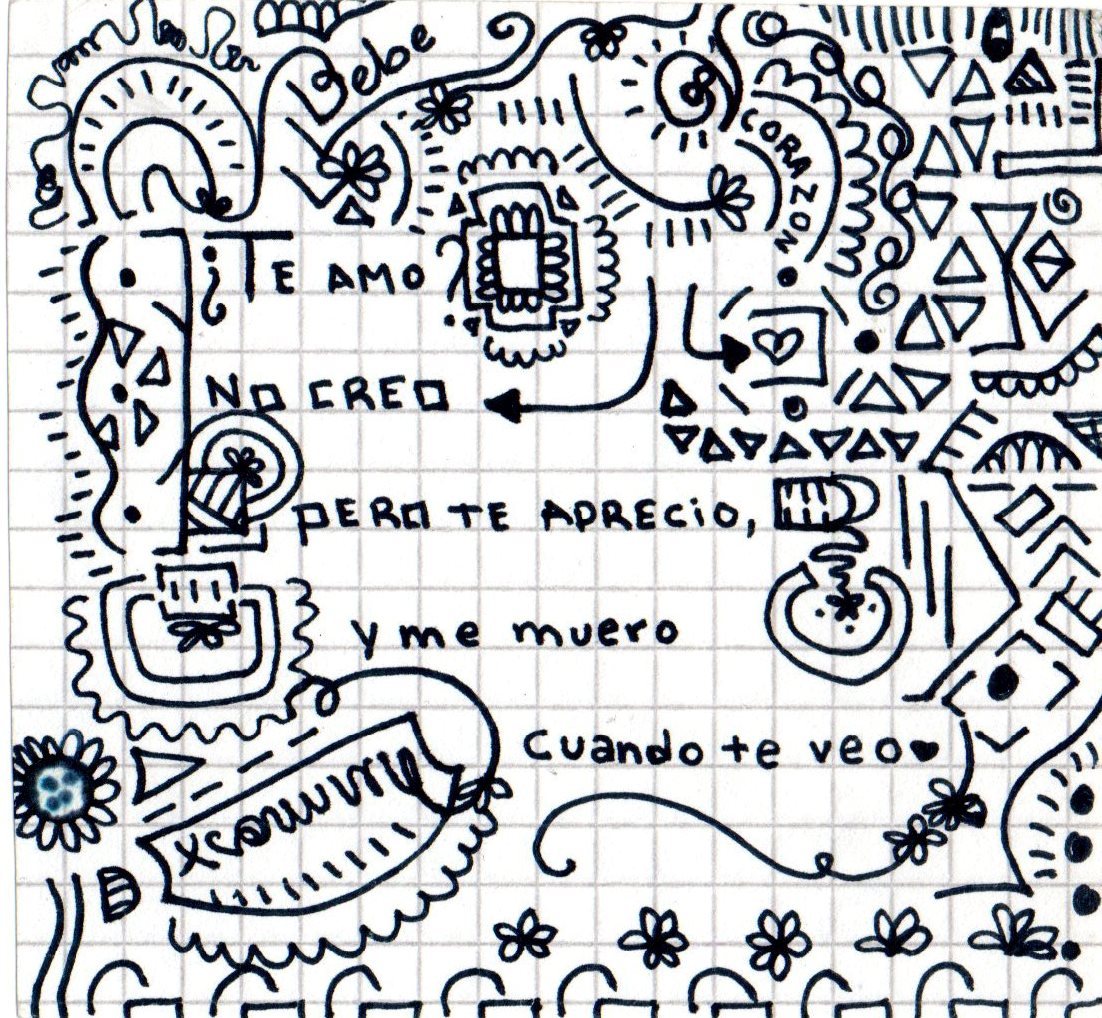 Bebe
CORAZON
¡TE AMO
NO CREO
PERO TE APRECIO,
y me muero
cuando te veo